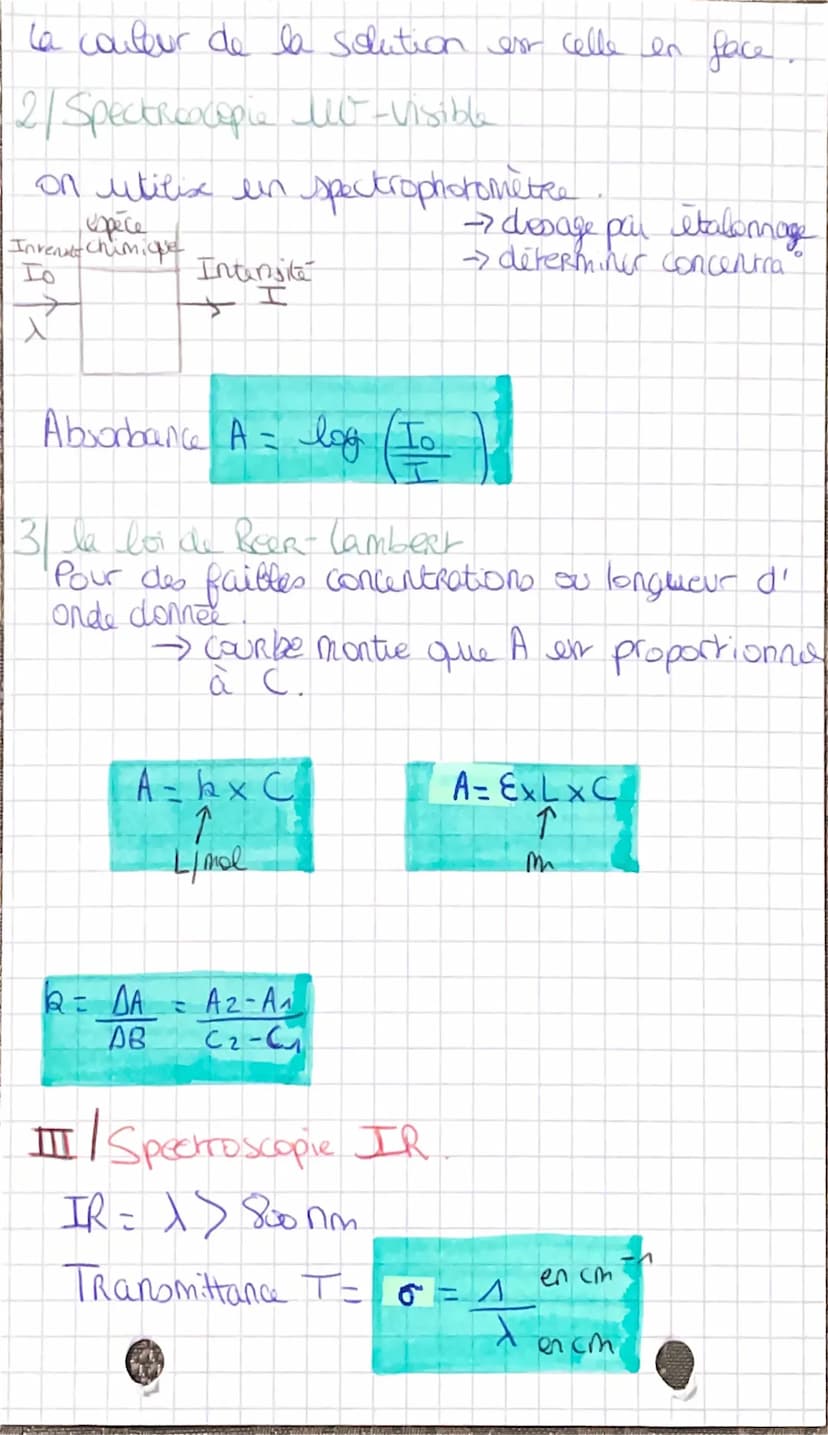 la couleur de la solution est celle en face.
2/ Spectroscopie UV-Visible
on utilise un spectrophotomètre.
→ dosage par étalonnage
→ déterminer concentra°
espèce
chimique
Intensité
I0
λ
Intensité
I
Absorbance A = log (I0/I)
3/ la loi de Beer-Lambert
Pour des faibles concentrations ou longueur d'
onde donnée.
→ courbe montre que A est proportionnel
à C.
A = k x C
↑
L/mol
A = ε x L x C
↑
m
k = ΔA/ΔB = A2-A1/C2-C1
III/ Spectroscopie IR.
IR = λ > 800 nm
Transmittance T = σ = 1/λ en cm⁻¹
en cm